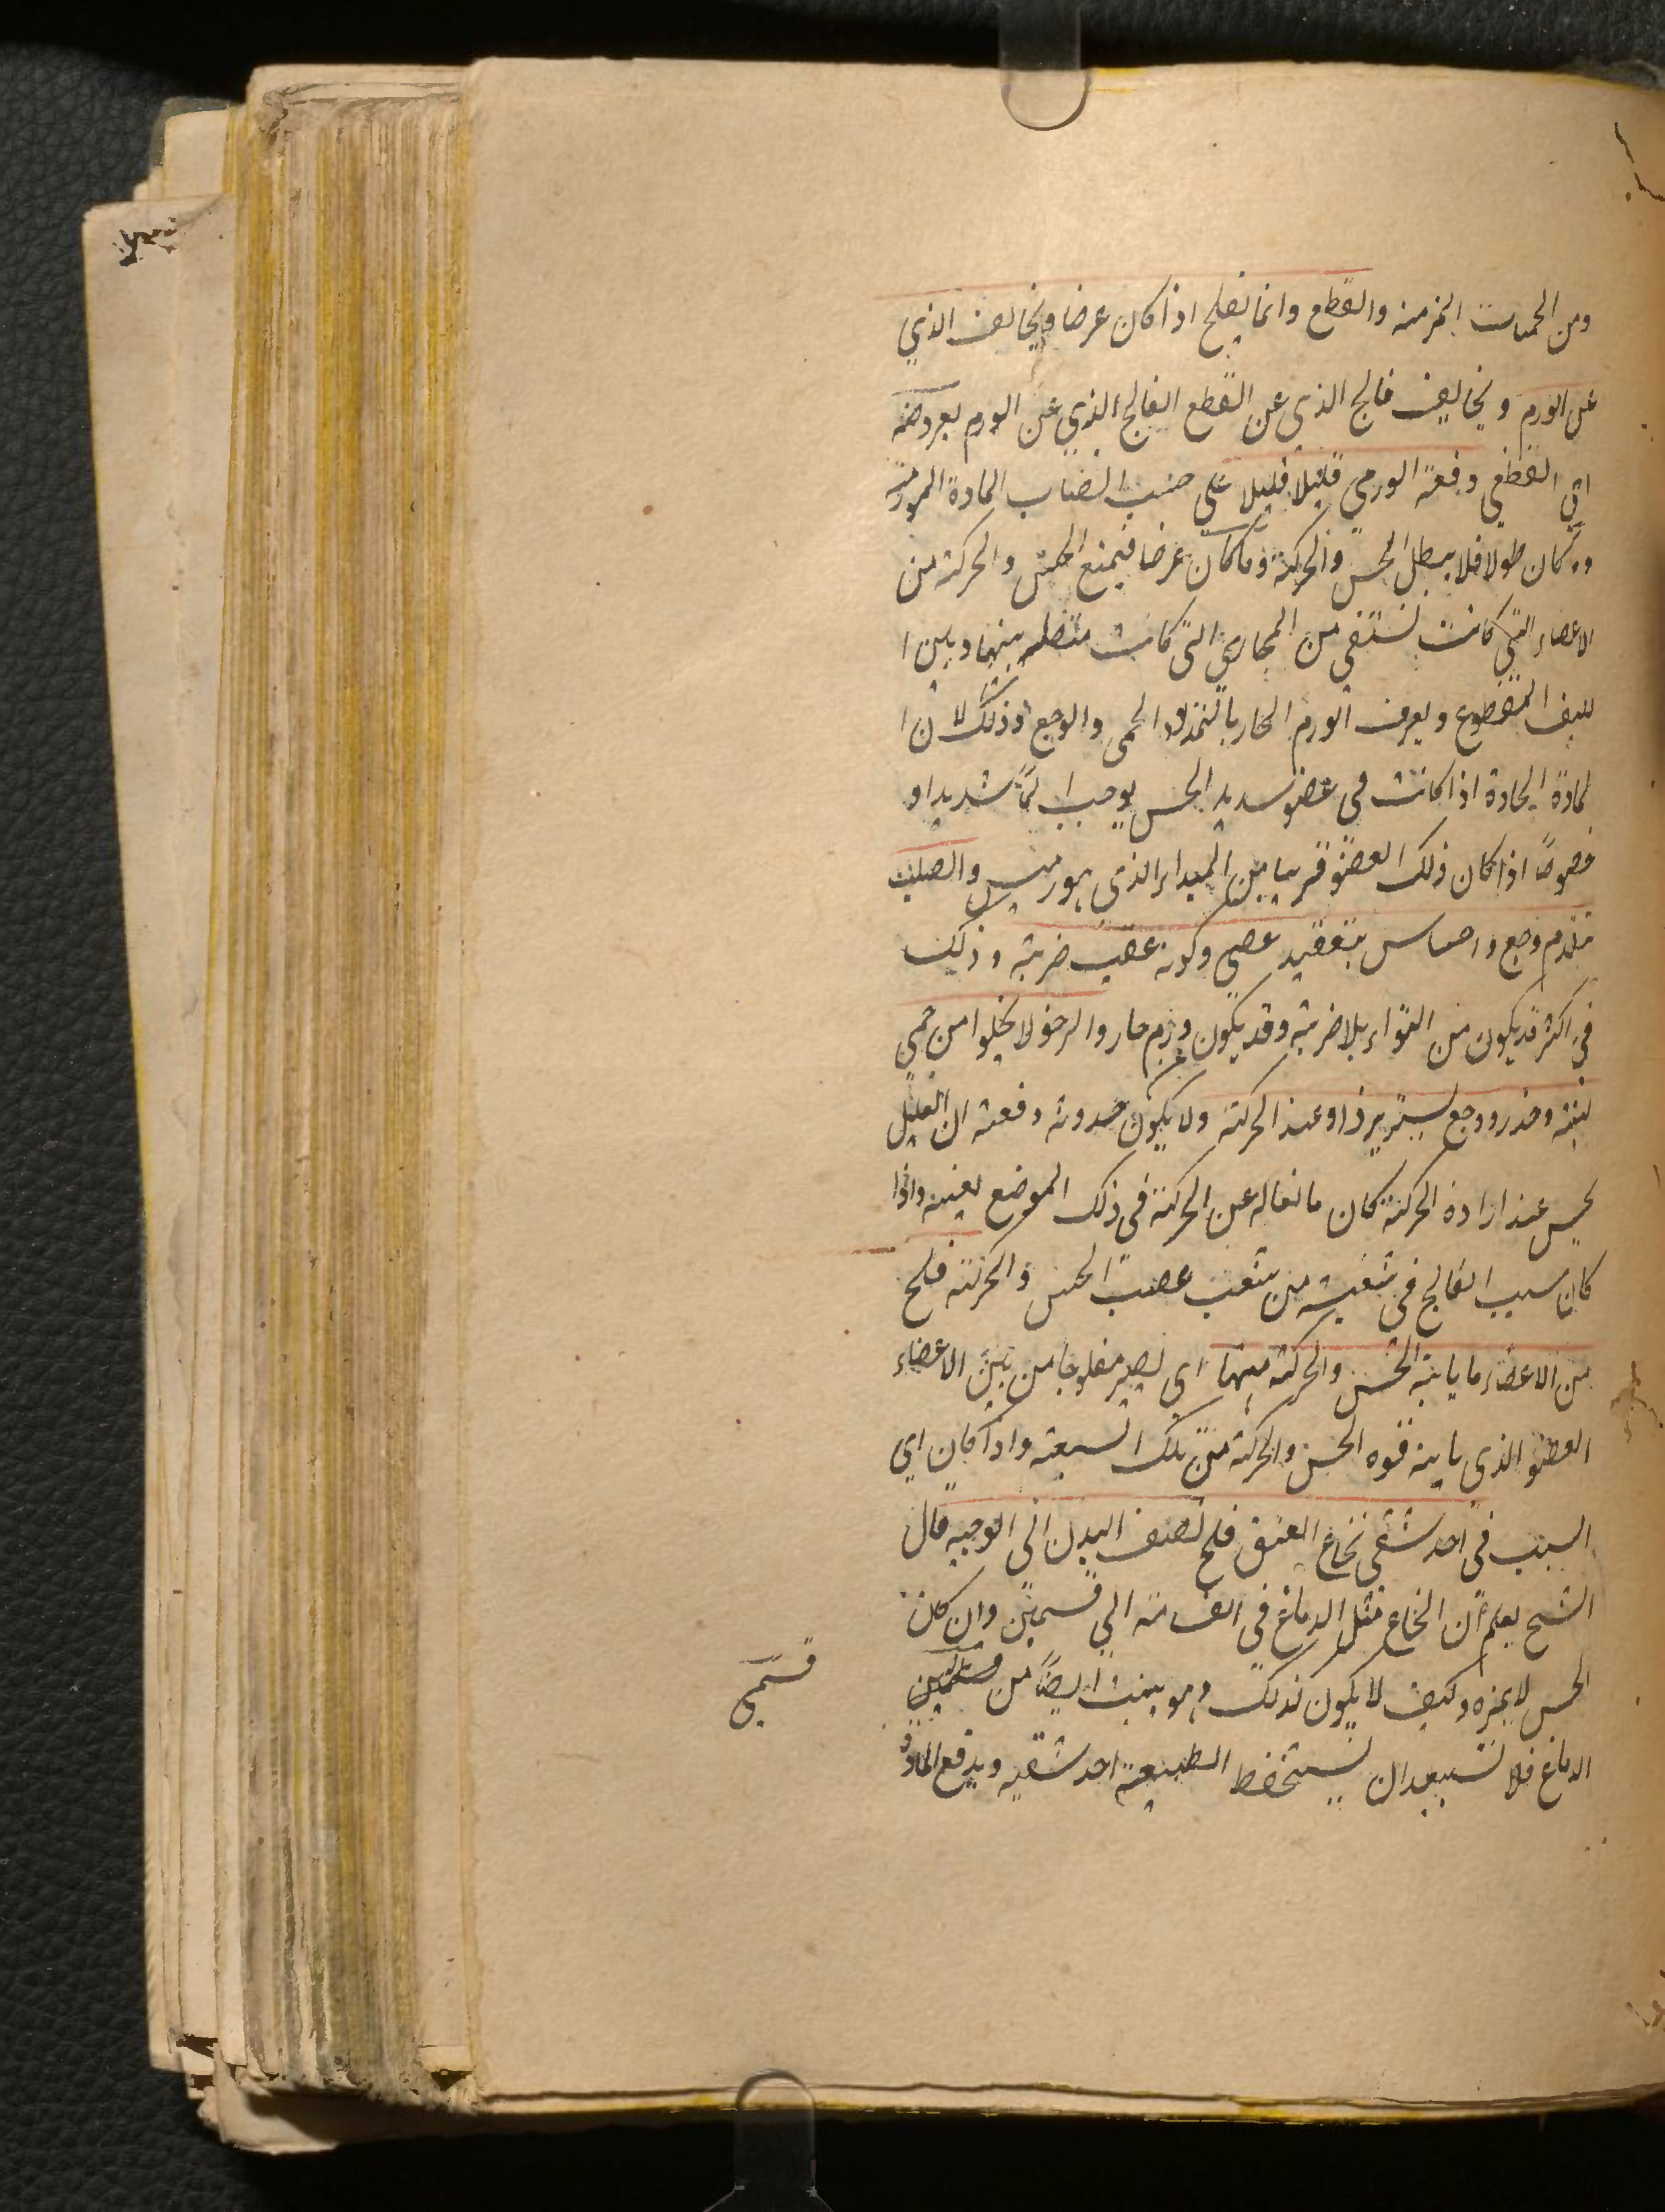 ومن الحميات المزمنه والقطع وانما يفلج اذا كان عرضا ويخالف الذي
عن الورم ويخالف فالج الذي عن القطع الفالج الذي عن الورم بعروضه
اي القطعي دفعة الورمي قليلا قليلا على حسب انصباب المادة المورمة
وما كان طولا فلا يبطل الحس والحركة وما كان عرضا فيمنع الحس والحركة من
الاعضاء التي كانت تستقى من المجاري التي كانت متصله بينها وبين ا
لليف المقطوع ويعرف الورم الحار بالتمدد والحمى والوجع وذلك لان ا
لمادة الحادة اذا كانت في عضو شديد الحس يوجب الماً شديدا و
خصوصاً اذا كان ذلك العضو قريبا من المبداء الذي هو رئيس والصلب
بتقدم وجع واحساس بتعقيد عصبي وكونه عقيب ضربة وذلك
في اكثر قد يكون من التواء بلا ضربة وقد يكون ورم حار والرخو لا يخلوا من حمى
لينة وخدر ووجع يسير يزداد عند الحركة ولا يكون حدوثه دفعة ان العليل
يحس عند ارادة الحركة كان مانعا له عن الحركة في ذلك الموضع بعينه واذا
كان سبب الفالج في شعبة من شعب عصب الحس والحركة فلج
من الاعضاء ما ياتيه الحس والحركة منها اى يصير مفلوجا من بين الاعضاء
العضو الذي ياتيه قوه الحس والحركة من تلك الشعبة واذا كان اي
السبب في احد شقي نخاع العنق فلج نصف البدن الى الوجه قال
الشيخ يعلم ان النخاع مثل الدماغ في انقسامه الي قسمين وان كان
الحس لا يميزه وكيف لا يكون كذلك وهو ينبت ايضاً من قسمين
قسمي
الدماغ فلا تستبعد ان يستحفظ الطبيعة احد شقيه ويدفع المادة